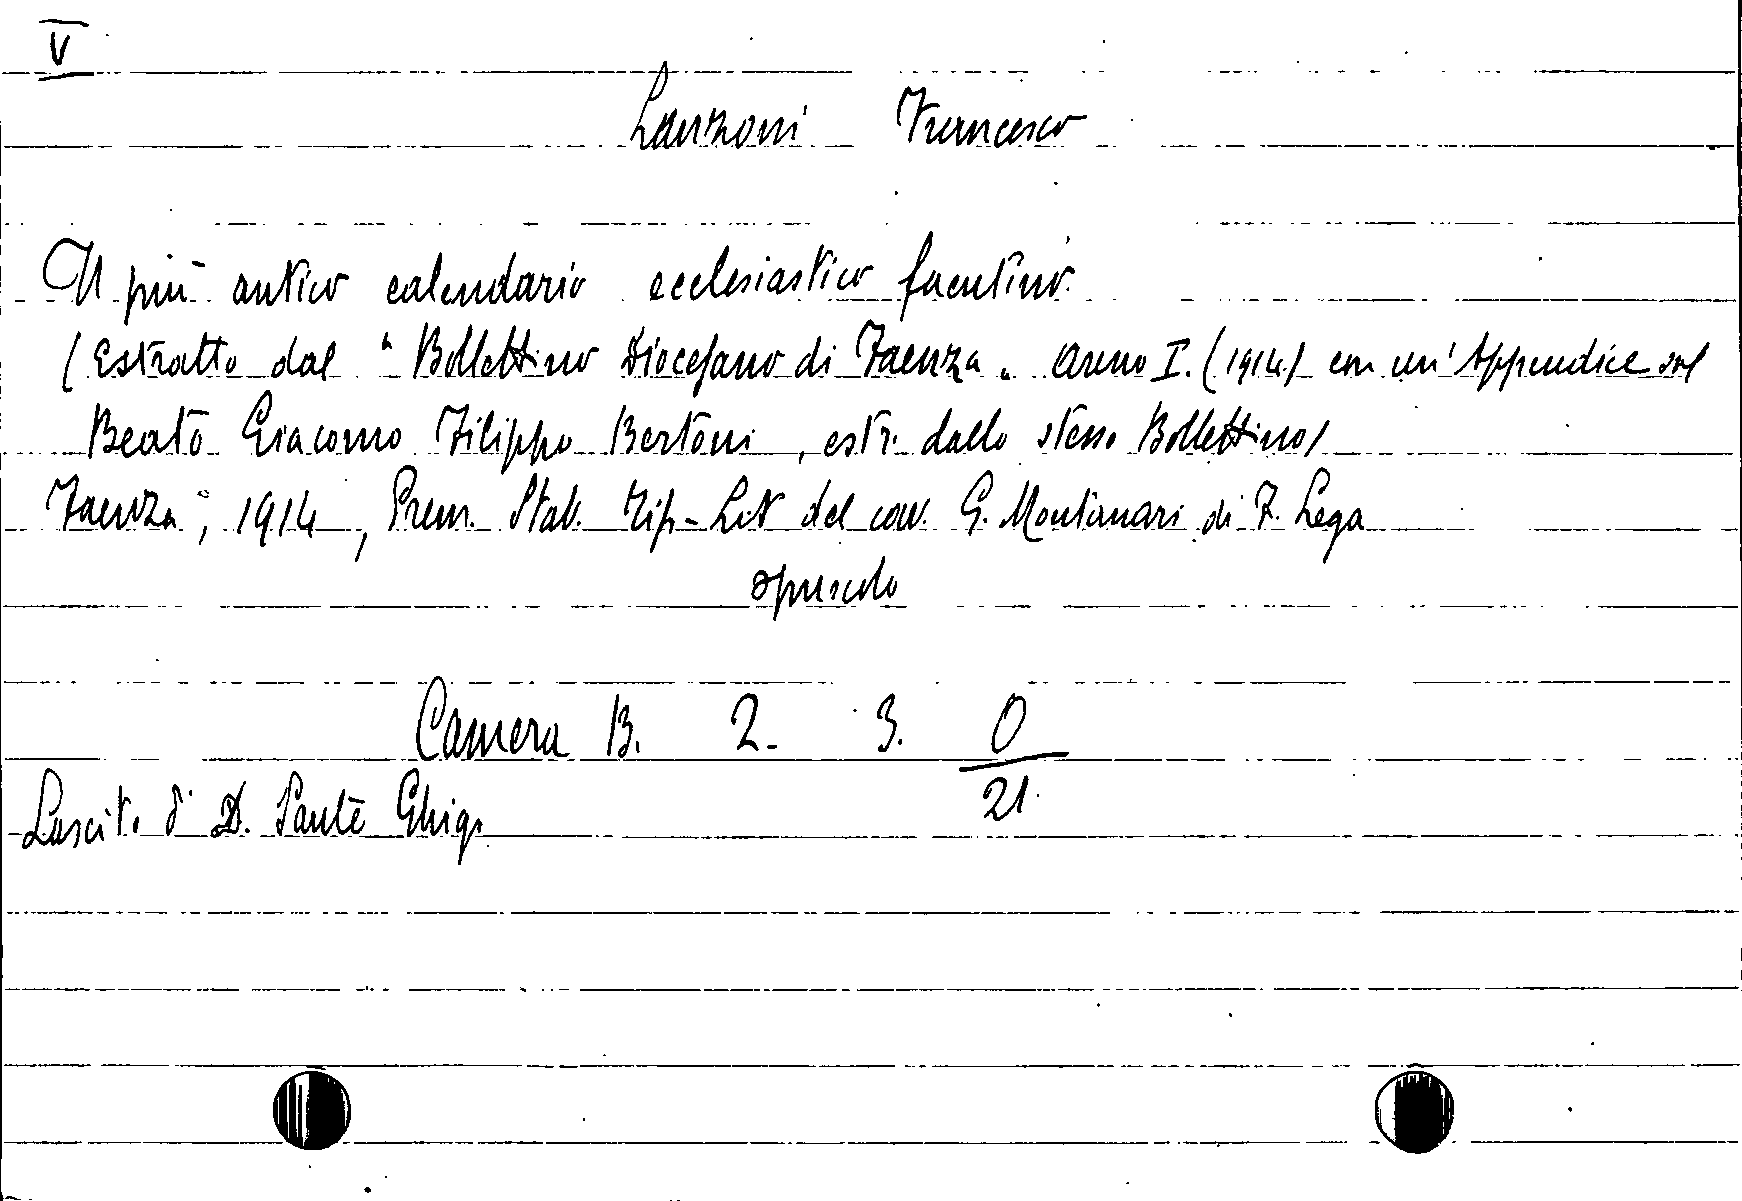 V
Lanzoni Francesco
Il più antico calendario ecclesiastico faentino.
(Estratto dal "Bollettino Diocesano di Faenza" anno I. (1914) con un'Appendice sul
Beato Giacomo Filippo Bertoni, estr. dallo stesso Bollettino)
Faenza, 1914, Prem. Stab. Tip-Lit del cav. G. Montanari di F. Lega
opuscolo
Camera B. 2. 3. 0
21.
Lascito di D. Sante Ghigi